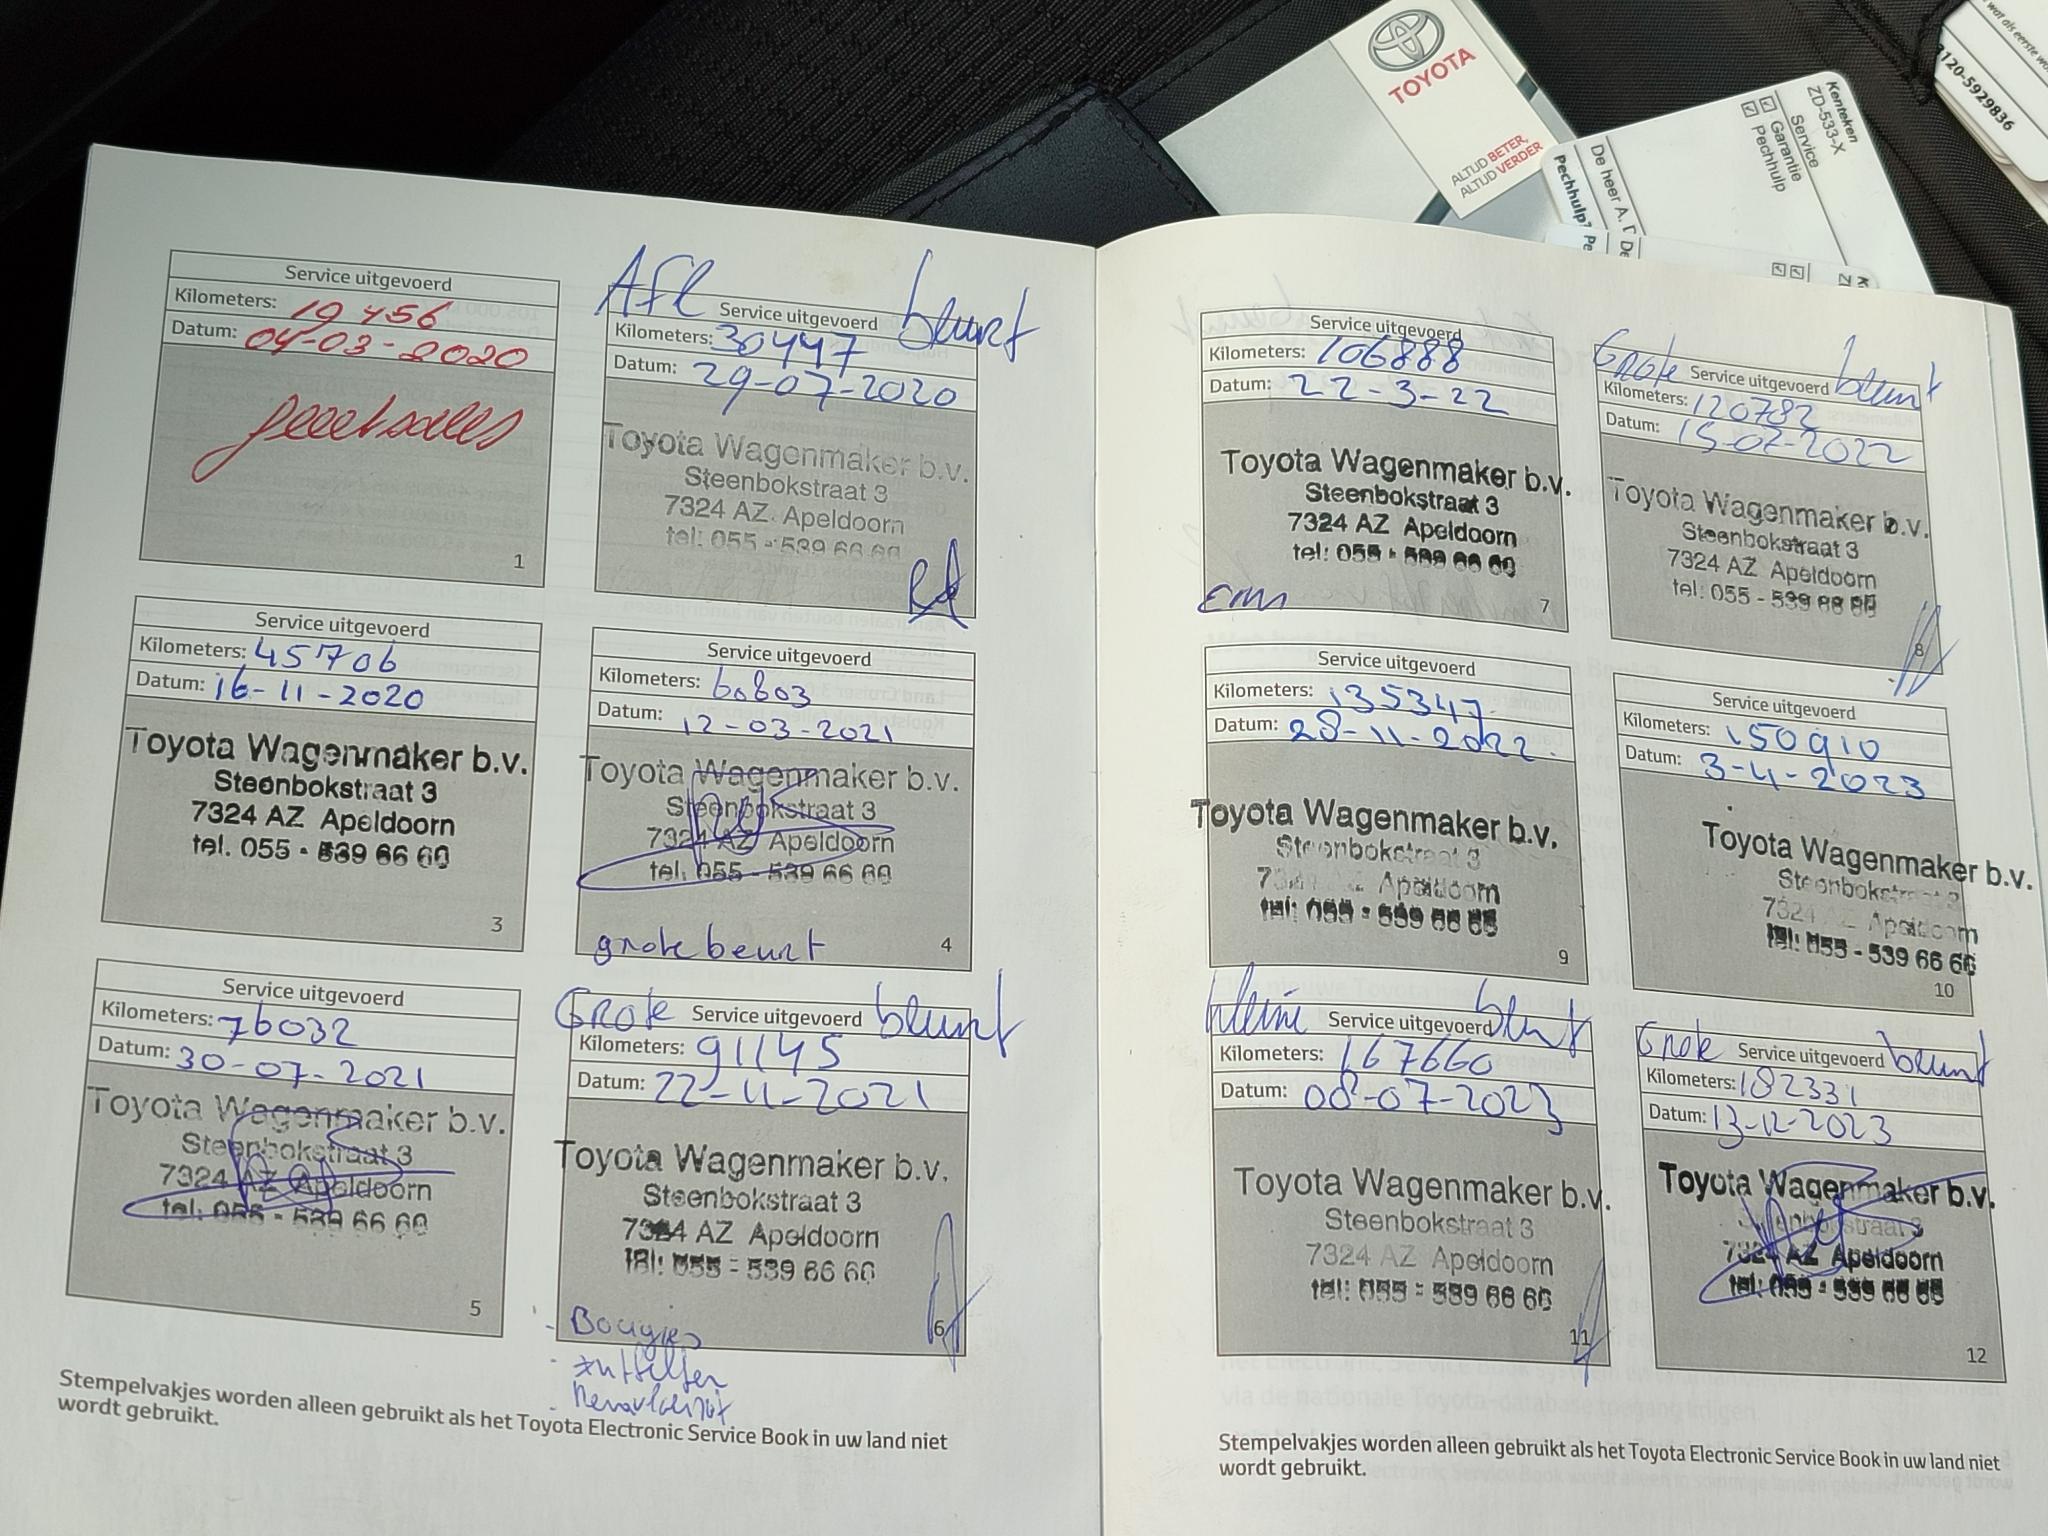 TOYOTA
ALTIJD BETER,
ALTIJD VERDER
Kenteken
ZD-533-X
Service
Garantie
Pechhulp
De heer A.
Pechhulp
wat als eerste
120-5929836
Service uitgevoerd
Kilometers: 19456
Datum: 04-03-2020
1
Afl beurt
Service uitgevoerd
Kilometers: 30447
Datum: 29-07-2020
Toyota Wagenmaker b.v.
Steenbokstraat 3
7324 AZ Apeldoorn
tel: 055 - 539 66 60
Service uitgevoerd
Kilometers: 45706
Datum: 16-11-2020
Toyota Wagenmaker b.v.
Steenbokstraat 3
7324 AZ Apeldoorn
tel. 055 - 539 66 60
3
Service uitgevoerd
Kilometers: 60803
Datum: 12-03-2021
Toyota Wagenmaker b.v.
Steenbokstraat 3
7324 AZ Apeldoorn
tel. 055 - 539 66 60
grote beurt
4
Service uitgevoerd
Kilometers: 76032
Datum: 30-07-2021
Toyota Wagenmaker b.v.
Steenbokstraat 3
7324 AZ Apeldoorn
tel. 055 - 539 66 60
5
Grote beurt
Service uitgevoerd
Kilometers: 91145
Datum: 22-11-2021
Toyota Wagenmaker b.v.
Steenbokstraat 3
7324 AZ Apeldoorn
tel: 055 - 539 66 60
6
- Bougies
Stempelvakjes worden alleen gebruikt als het Toyota Electronic Service Book in uw land niet
wordt gebruikt.
Service uitgevoerd
Kilometers: 106888
Datum: 22-3-22
Toyota Wagenmaker b.v.
Steenbokstraat 3
7324 AZ Apeldoorn
tel: 055 - 539 66 60
7
Grote beurt
Service uitgevoerd
Kilometers: 120782
Datum: 15-07-2022
Toyota Wagenmaker b.v.
Steenbokstraat 3
7324 AZ Apeldoorn
tel: 055 - 539 66 60
8
Service uitgevoerd
Kilometers: 135347
Datum: 28-11-2022.
Toyota Wagenmaker b.v.
Steenbokstraat 3
7324 AZ Apeldoorn
tel: 055 - 539 66 66
9
Service uitgevoerd
Kilometers: 150910
Datum: 3-4-2023
Toyota Wagenmaker b.v.
Steenbokstraat 3
7324 AZ Apeldoorn
tel: 055 - 539 66 66
10
kleine beurt
Service uitgevoerd
Kilometers: 167660
Datum: 08-07-2023
Toyota Wagenmaker b.v.
Steenbokstraat 3
7324 AZ Apeldoorn
tel: 055 - 539 66 60
11
Grote beurt
Service uitgevoerd
Kilometers: 182331
Datum: 13-12-2023
Toyota Wagenmaker b.v.
Steenbokstraat 3
7324 AZ Apeldoorn
tel: 055 - 539 66 66
12
Stempelvakjes worden alleen gebruikt als het Toyota Electronic Service Book in uw land niet
wordt gebruikt.